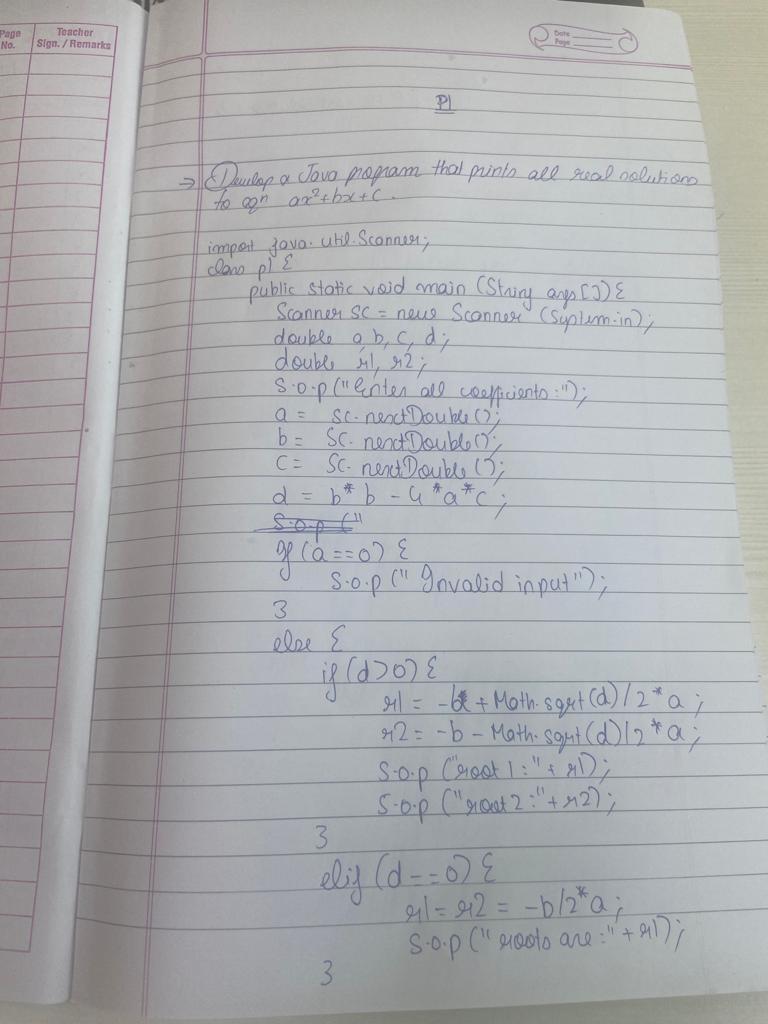 Page No.
Teacher Sign. / Remarks
Date
Page
P1
→ Develop a Java program that prints all real solutions
to eqn ax²+bx+c.
import java.util.Scanner;
class p1 {
public static void main (String args[]){
Scanner sc = new Scanner (System.in);
double a, b, c, d;
double r1, r2;
S.o.p ("Enter all coefficients:");
a = sc.nextDouble();
b = sc.nextDouble();
c = sc.nextDouble();
d = b*b - 4*a*c;
S.o.p ("
If (a==0) {
S.o.p ("Invalid input");
}
else {
if (d>0) {
r1 = -b + Math.sqrt(d)/2*a;
r2 = -b - Math.sqrt(d)/2*a;
S.o.p ("root 1:"+ r1);
S.o.p ("root 2:"+ r2);
}
elif (d==0) {
r1 = r2 = -b/2*a;
S.o.p ("roots are:"+ r1);
}